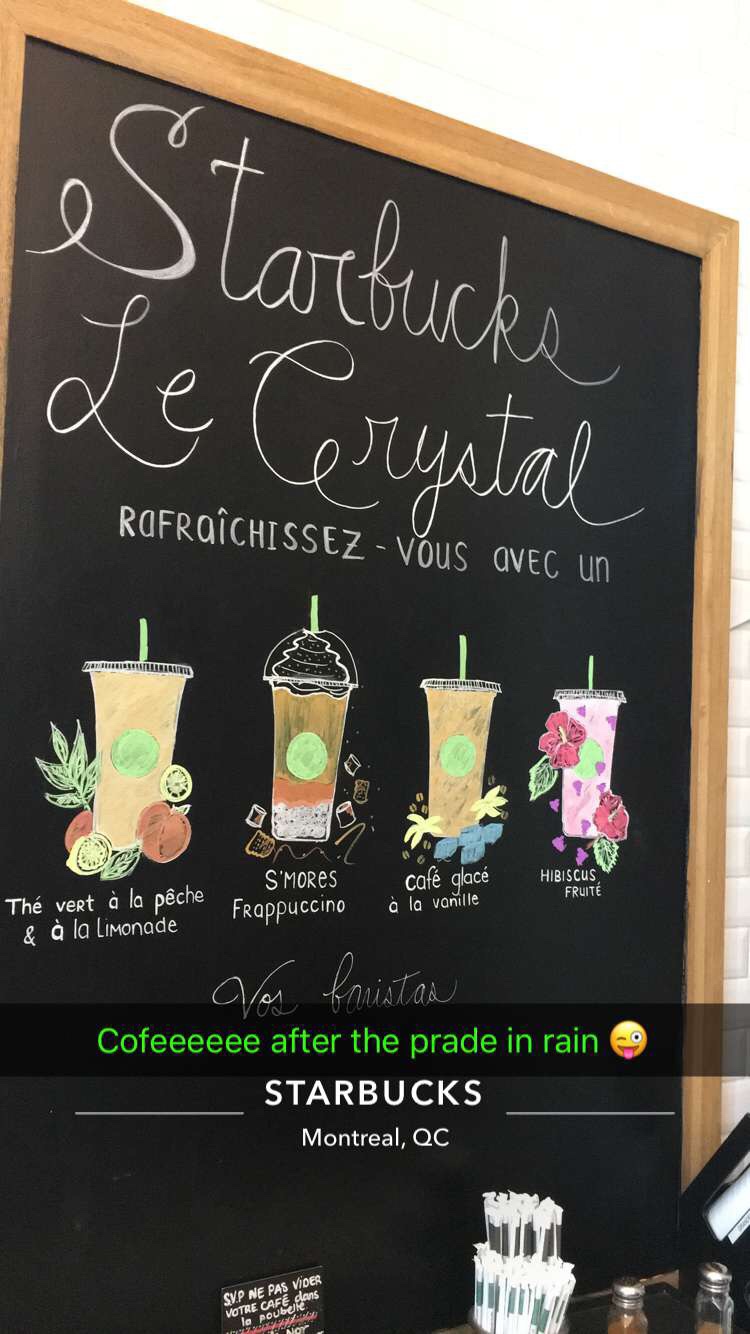 Starbucks
Le Crystal
RAFRAÎCHISSEZ - VOUS AVEC un
Thé vert à la pêche
& à la Limonade
S'MORES
FRappuccino
café glacé
à la vanille
HIBISCUS
FRUITÉ
Vos baristas
Cofeeeeeee after the prade in rain 😜
STARBUCKS
Montreal, QC
S.V.P NE PAS VIDER
VOTRE CAFÉ dans
la poubelle